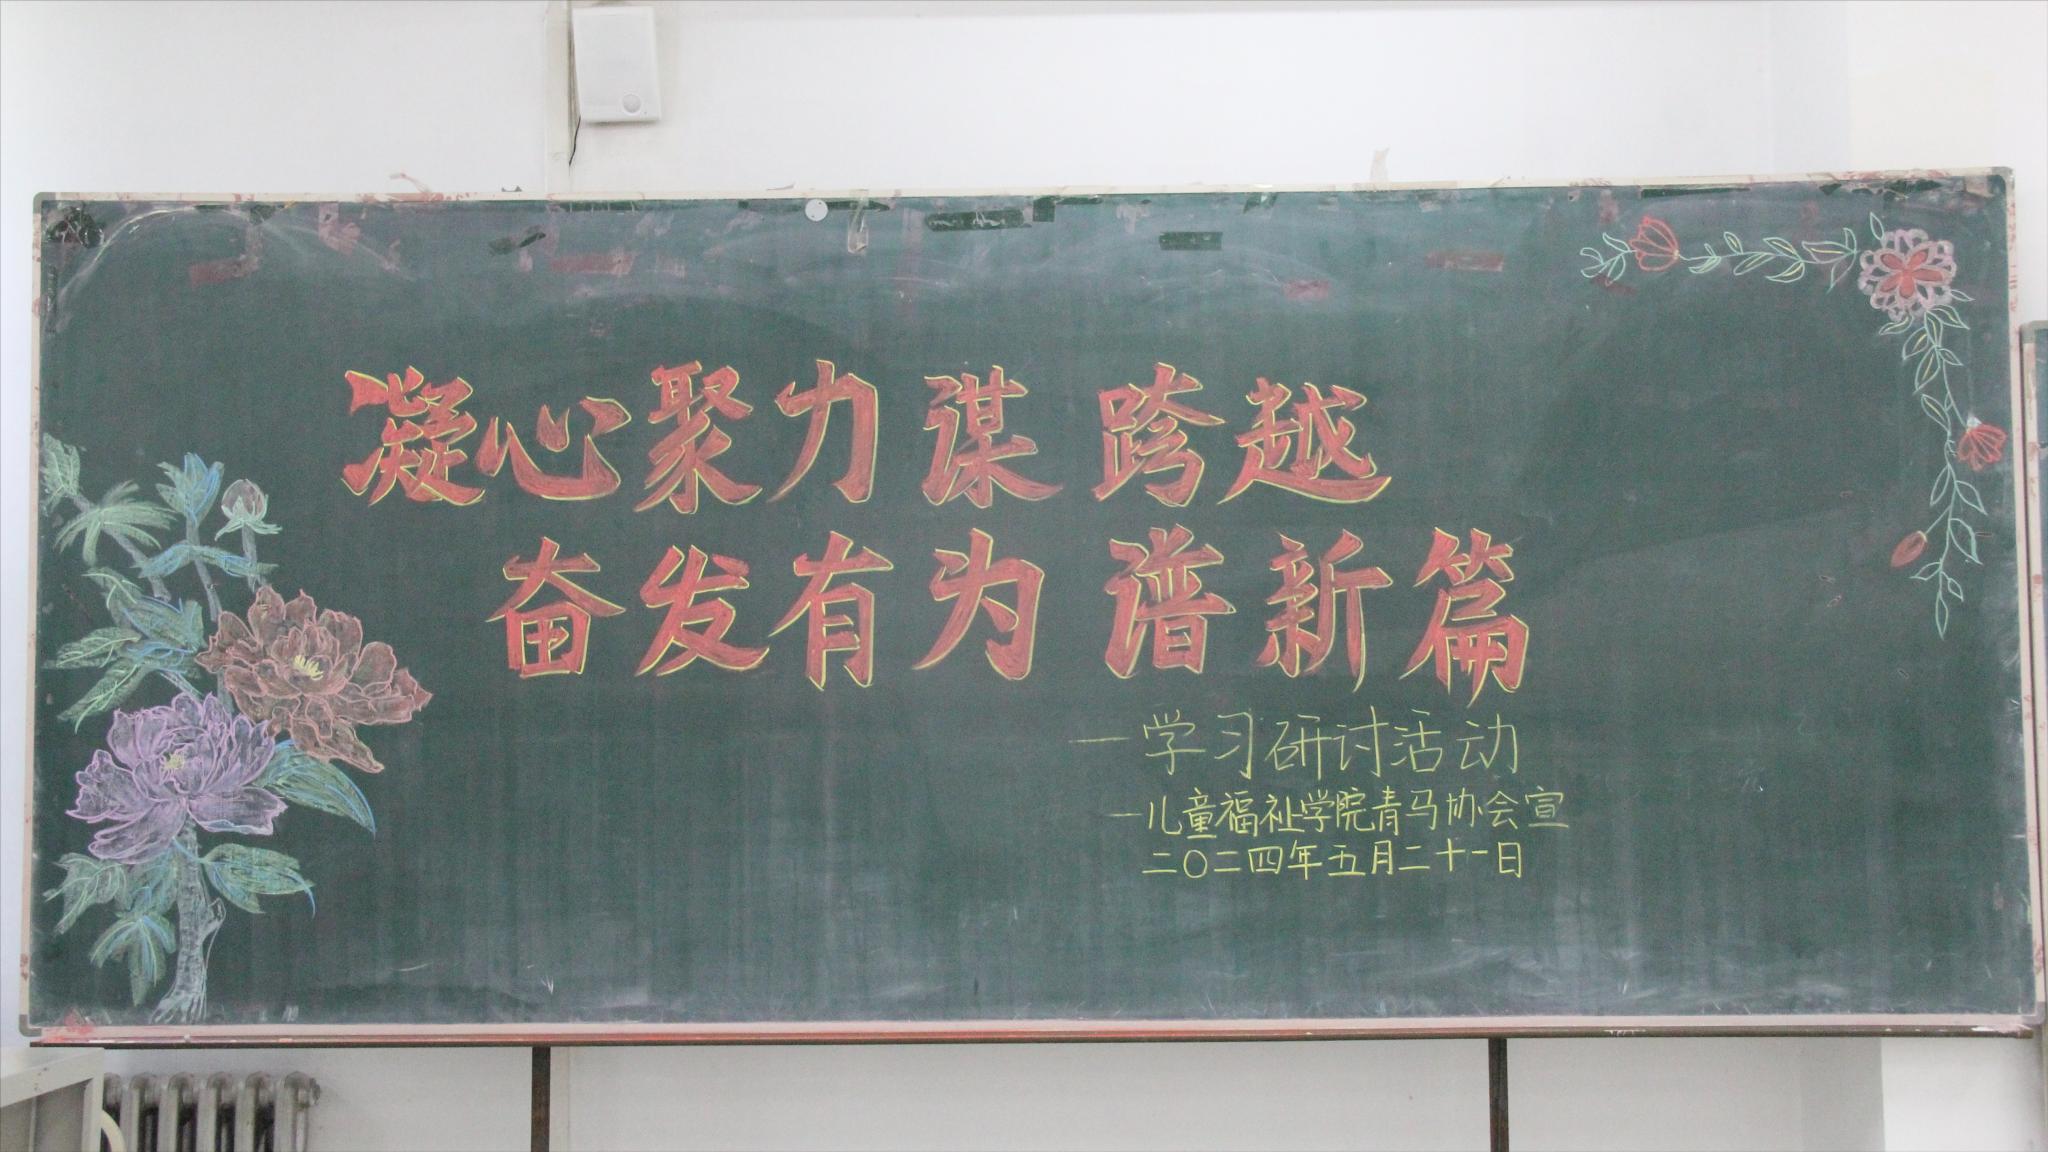 凝心聚力谋跨越
奋发有为谱新篇
—学习研讨活动
—儿童福祉学院青马协会宣
二〇二四年五月二十一日